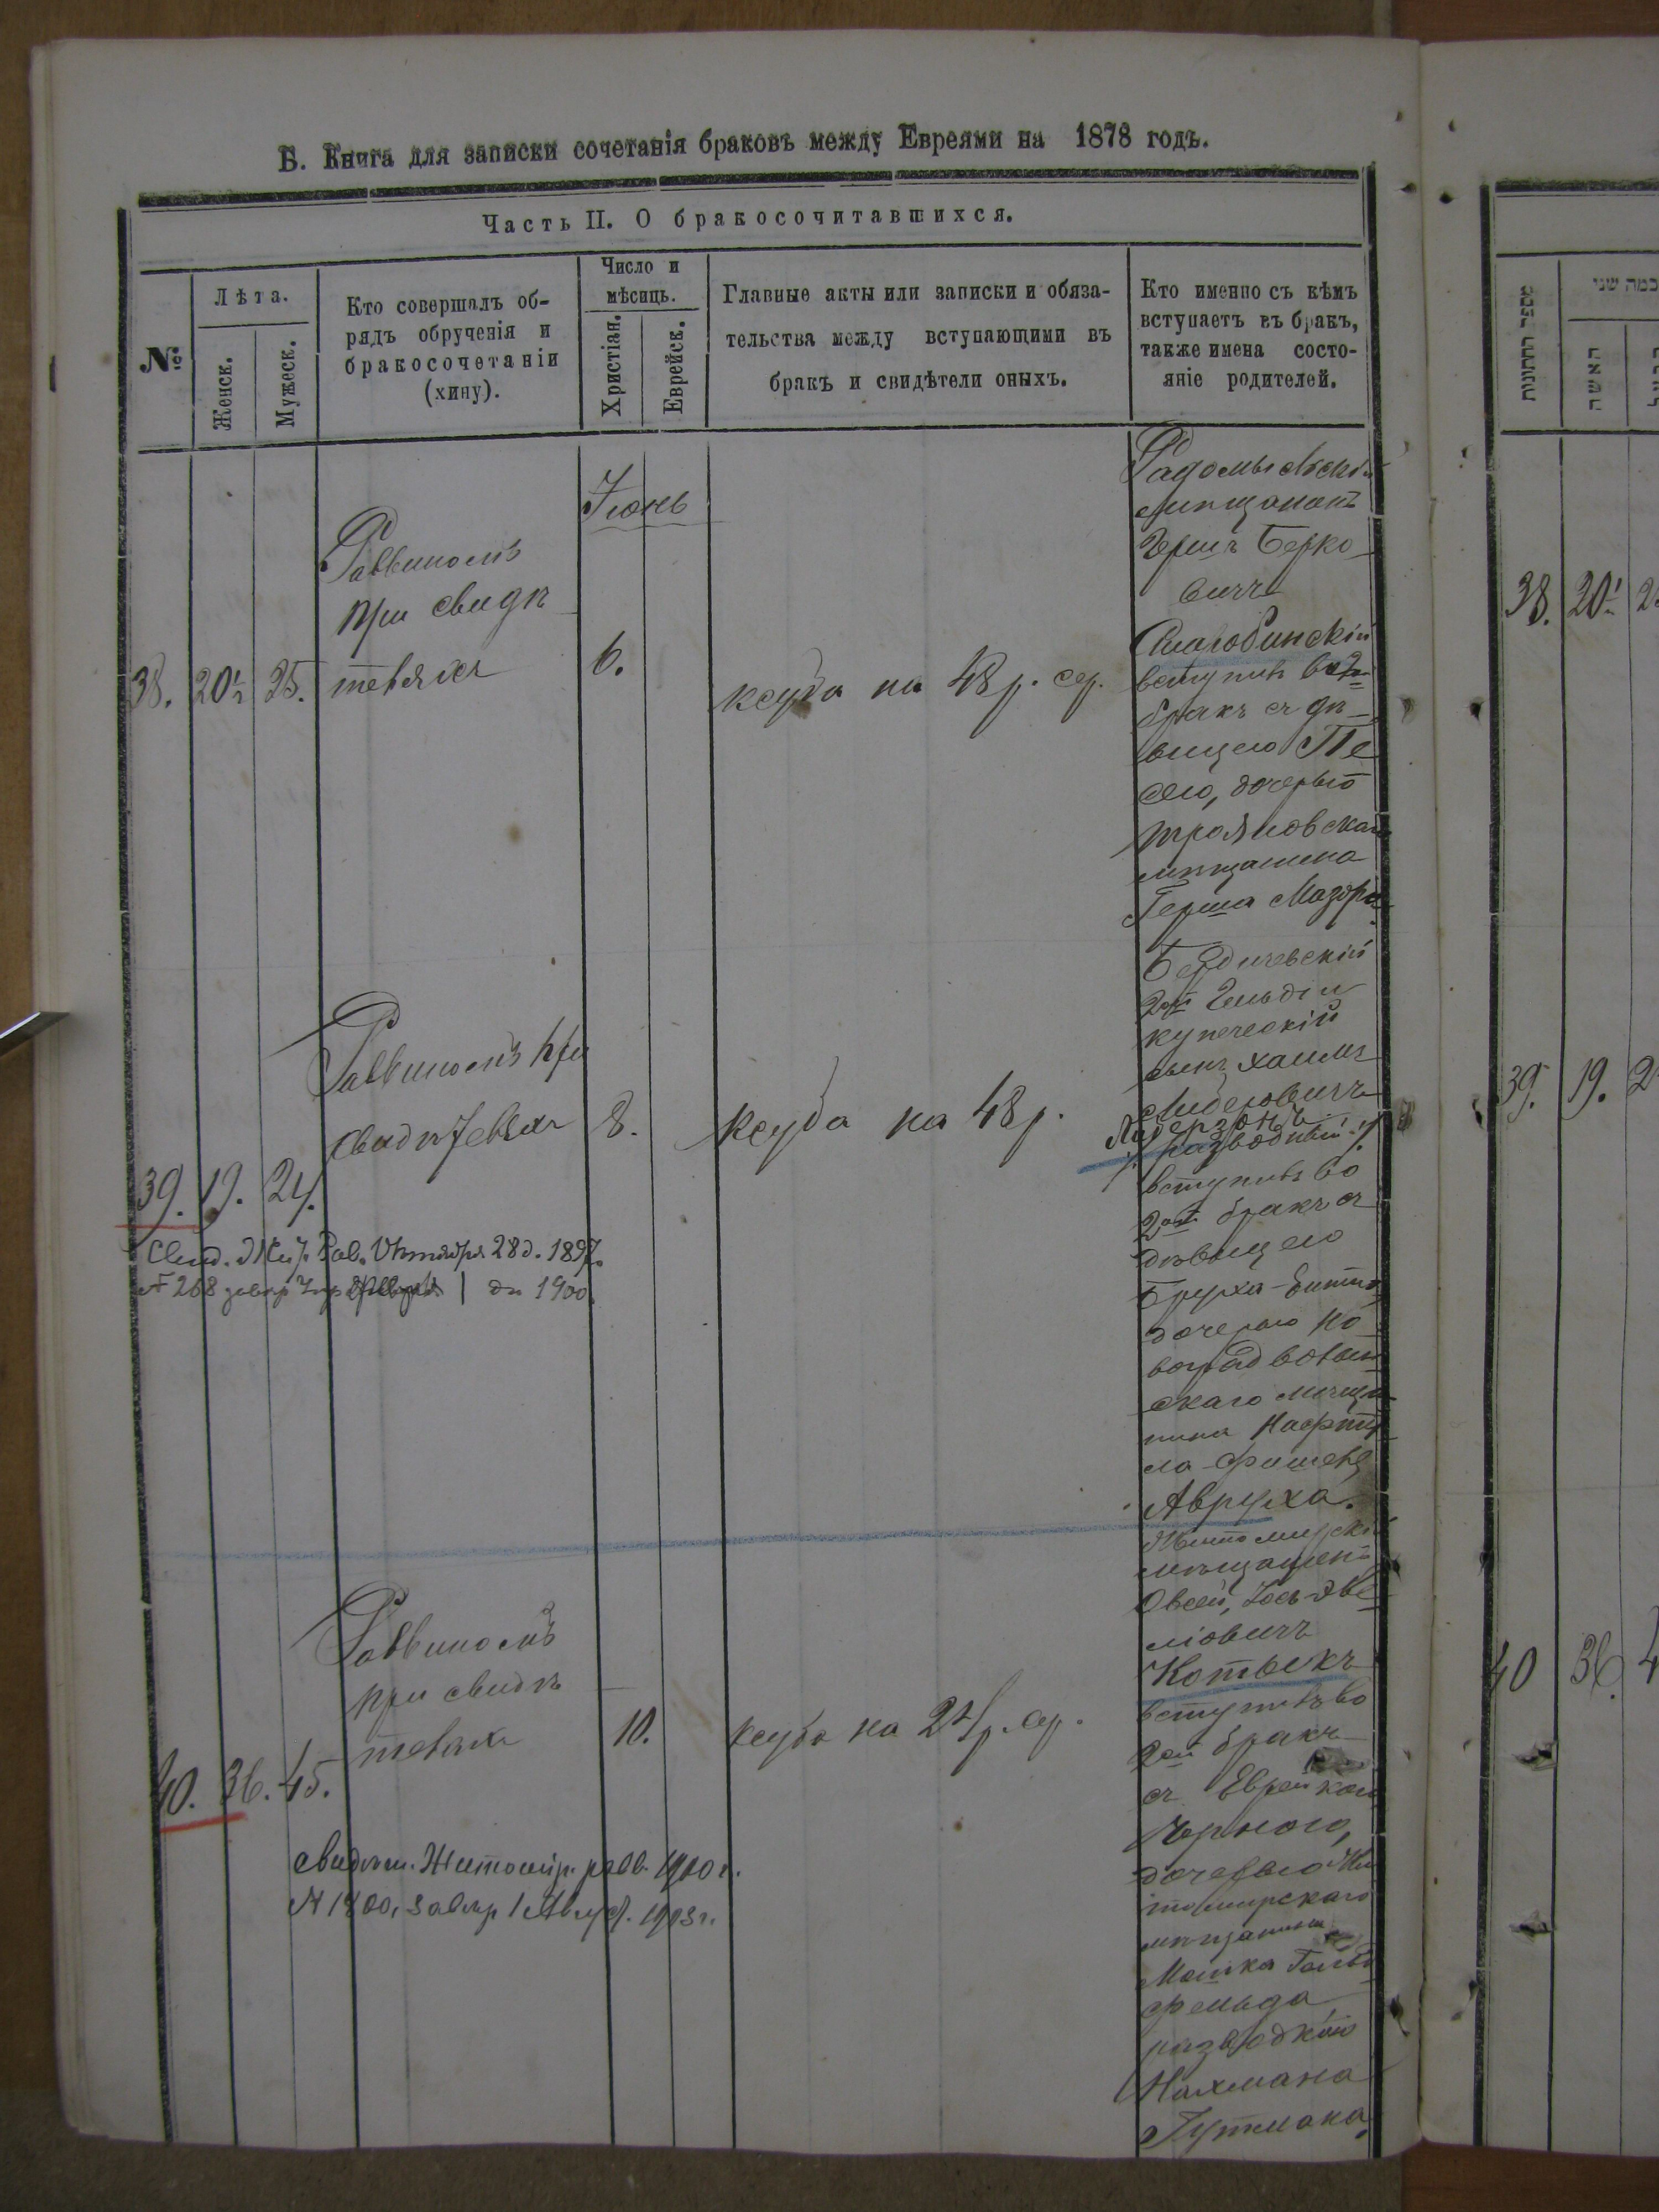 Б. Книга для записки сочетанія браковъ между Евреями на 1878 годъ.
Часть II. О бракосочитавшихся.
№
Лѣта.
Женск.
Мужеск.
Кто совершалъ об-
рядъ обрученія и
бракосочетаніи
(хину).
Число и
мѣсяцъ.
Христіян.
Еврейск.
Главные акты или записки и обяза-
тельства между вступающими въ
бракъ и свидѣтели оныхъ.
Кто именно съ кѣмъ
вступаетъ въ бракъ,
также имена состо-
яніе родителей.
38.
20½
25.
Раввиномъ
при свидѣ
теляхъ
Іюнь
6.
ксуба на 48 р. сер.
Радомысльскій
мѣщанинъ
Герша Берко
вичъ
вступилъ
бракъ съ дѣ
вицею Пе
сею, дочерью
трояновскаго
мѣщанина
Герша
39.
19.
24.
Раввиномъ при
свидѣтелях
8.
ксуба на 48 р.
Бердичевскій
2ой Гильдіи
купеческій
сынъ Хаимъ
Лидерзонъ
разводный
вступилъ во
2ой бракъ съ
дѣвицею
Бруха-
дочерью Но
воградволын
скаго мѣща
нина Нафту
ла-Фишель
Авруха.
Свид. Жит. Рав. Октября 28 д. 1897.
№ 268
1900
40.
36.
45.
Раввиномъ
при свидѣ
теляхъ
10.
ксуба на 24 р. сер.
Житомирскій
мѣщанинъ
Овсей, Іось-
ліовичъ
Котыкъ
вступилъ во
2ой бракъ
съ Еврейкою
дочерью Жи
томирскаго
мѣщанина
Мошка Гольд
фельда
разводкою
Нахмана
Гутмана.
Свидѣт. Житомір. равв. 1900 г.
№ 1800, 1 Август. 1903 г.
מספר החתונות
כמה שני
האשה
38.
20½
39.
19.
40
36.